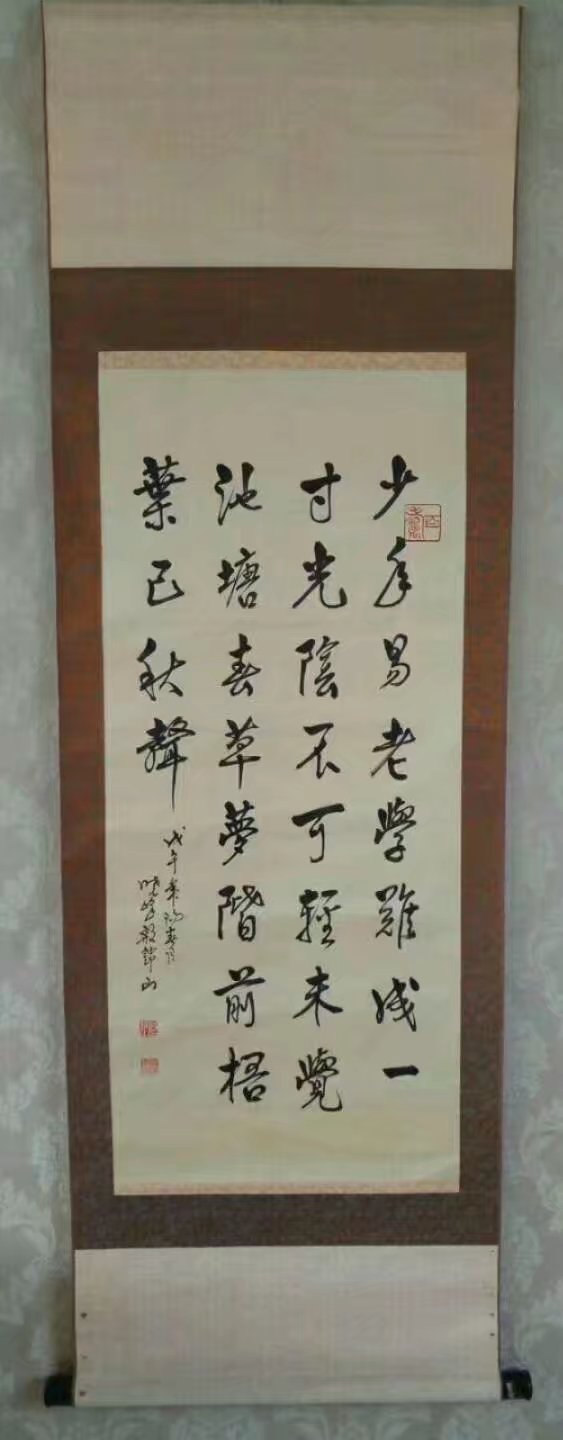 少年易老學難成一
寸光陰不可輕未覺
池塘春草夢階前梧
葉已秋聲
戊午
山